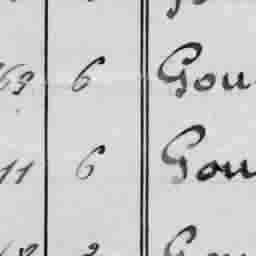 63 6 Gou
11 6 Gou